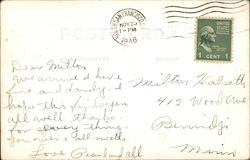 SAN FRANCISCO
NOV 25
1-PM
1938
POSTCARD
1 CENT 1
Dear Milton
We arrived here
fine and dandy. I
hope this finds you
all well. thanks
for every thing.
all well.
Love Pearl and all
Milton Halseth
412 Wood Ave
Bemidji
Minn